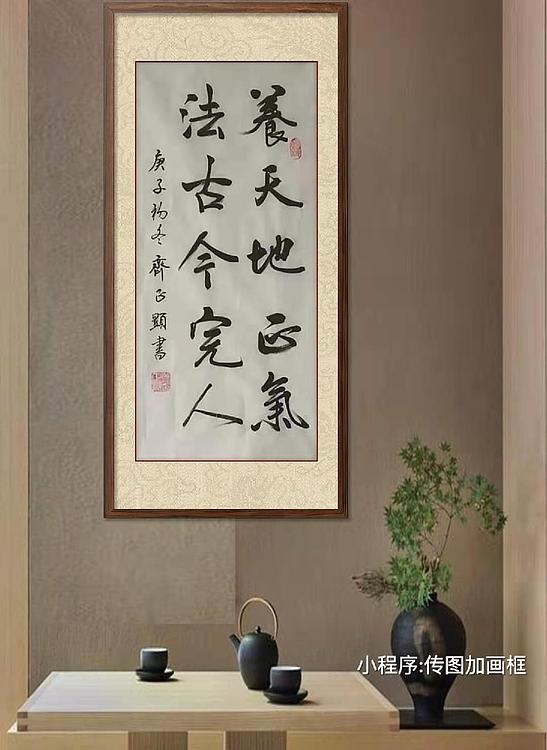 養天地正氣
法古今完人
庚子初冬齊正顯書
小程序:传图加画框